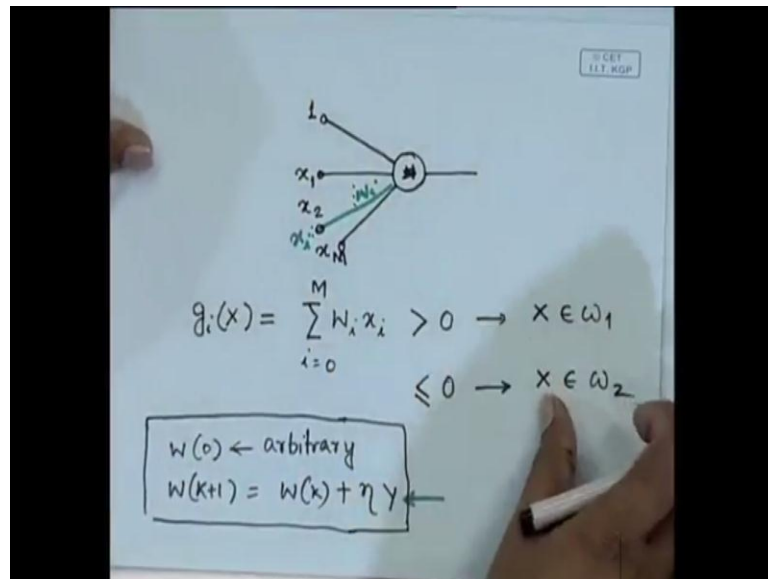 © CET
I.I.T. KGP
1
x₁
x₂
xᵢ
Wᵢ
x_M
M
gᵢ(X) = Σ Wᵢ xᵢ > 0 → X ∈ ω₁
i=0
≤ 0 → X ∈ ω₂
W(0) ← arbitrary
W(K+1) = W(K) + η Y ←